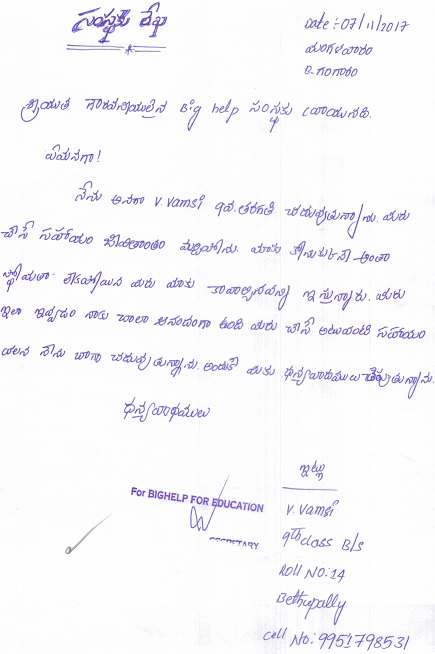 సంస్థకు లేఖ
Date :- 07/11/2017
మంగళవారం
బి.గంగారం
శ్రీయుత గౌరవనీయులైన Big help సంస్థకు వ్రాయునది.
ఏమనగా!
నేను అనగా V. Vamsi 9వ. తరగతి చదువుతున్నాను. మీరు
చేసే సహాయం జీవితాంతం మర్చిపోను. మాకు
మీరు మాకు కావాల్సినవన్ని ఇస్తున్నారు. మీరు
ఇలా ఇవ్వడం నాకు చాలా ఆనందంగా ఉంది మీరు చేసే అటువంటి సహాయం
వలన నేను బాగా చదువుతున్నాను. అందుకే మీకు ధన్యవాదములు తెల్పుతున్నాను.
ధన్యవాదములు
ఇట్లు
V. Vamsi
For BIGHELP FOR EDUCATION
SECRETARY
9th class B/s
Roll NO: 14
Bethupally
Cell No: 9951798531